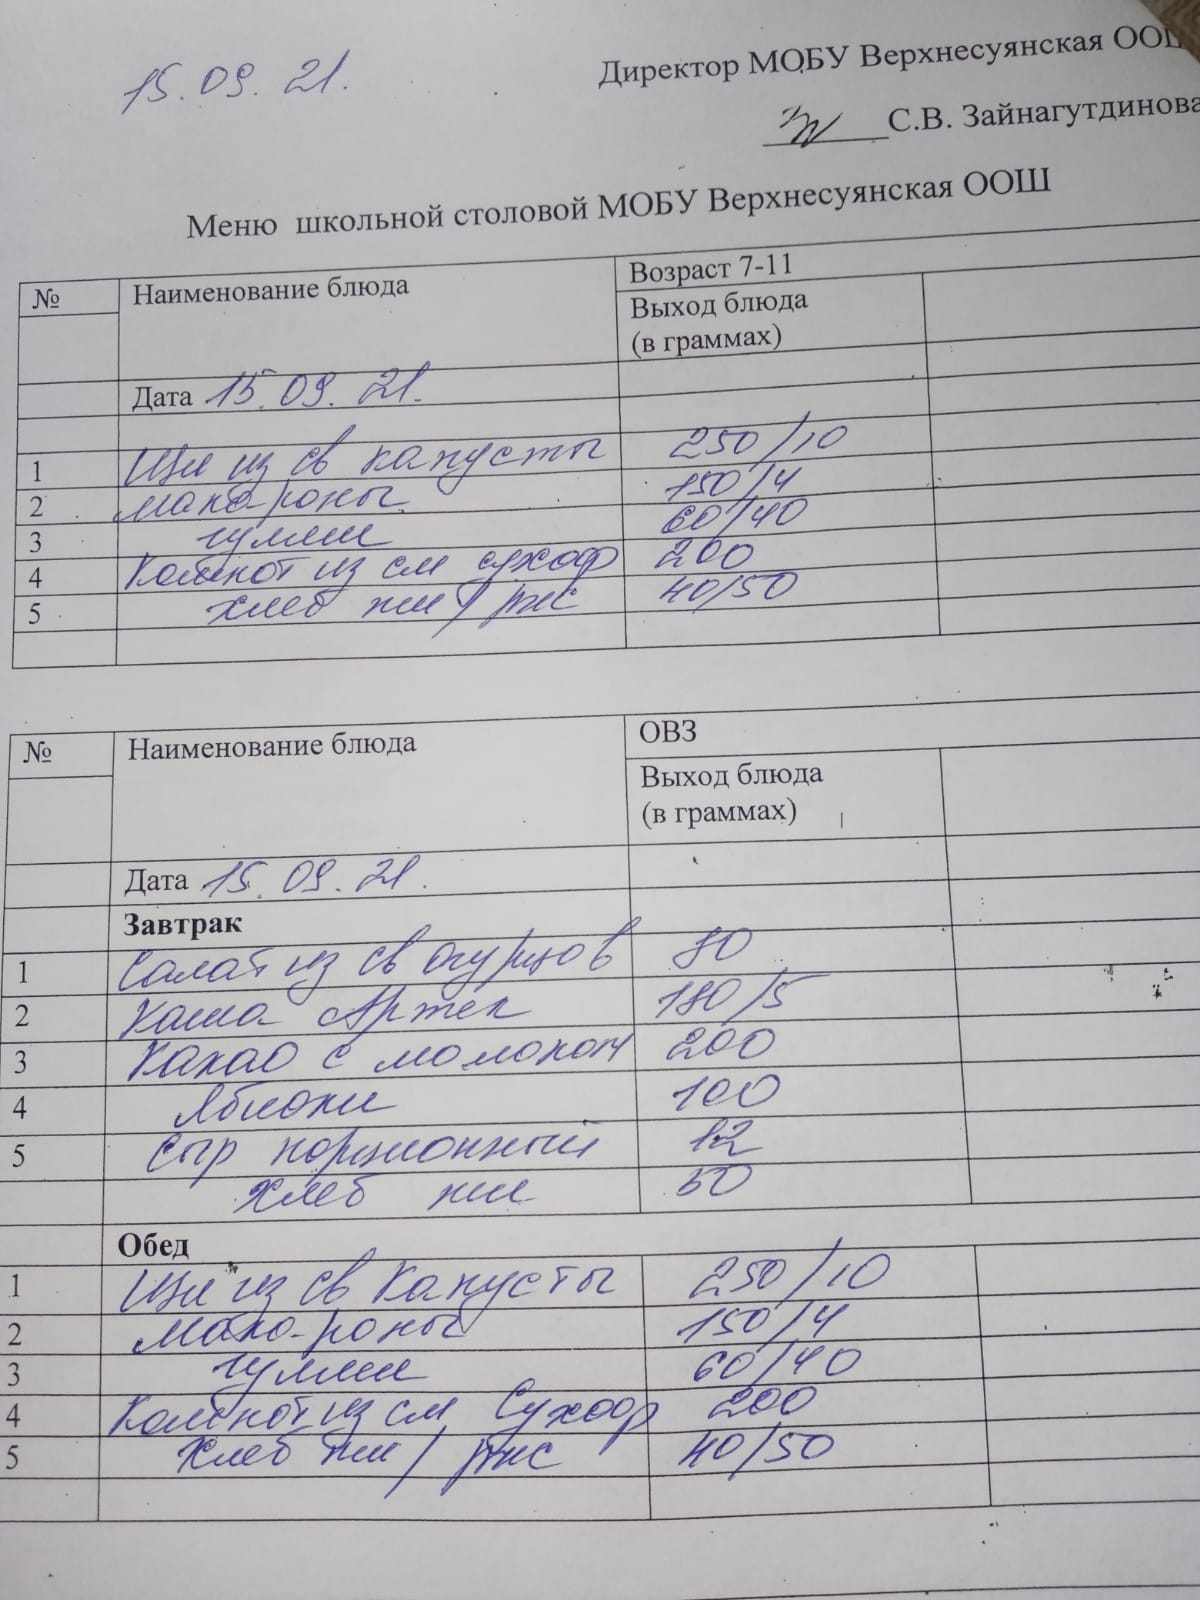 15.09.21.
Директор МОБУ Верхнесуянская ООШ
С.В. Зайнагутдинова
Меню школьной столовой МОБУ Верхнесуянская ООШ
№ Наименование блюда Возраст 7-11
Выход блюда
(в граммах)
Дата 15.09.21.
1 Щи из св капусты 250/10
2 макароны 150/4
3 гуляш 60/40
4 Компот из см сухоф 200
5 хлеб пш/ржс 40/50
№ Наименование блюда ОВЗ
Выход блюда
(в граммах)
Дата 15.09.21.
Завтрак
1 Салат из св огурцов 80
2 Каша Артек 180/5
3 Какао с молоком 200
4 Яблоки 100
5 Сыр порционный 12
Хлеб пш 50
Обед
1 Щи из св Капусты 250/10
2 макароны 150/4
3 гуляш 60/40
4 Компот из см Сухоф 200
5 Хлеб пш/ржс 40/50